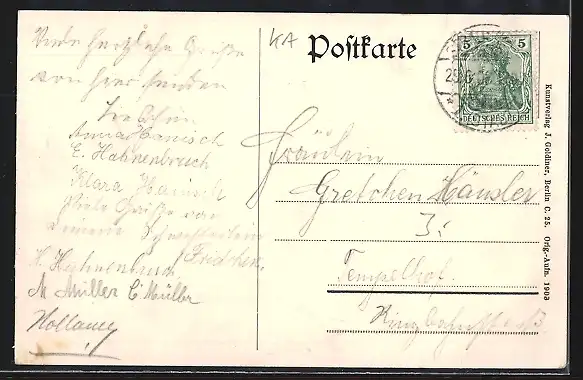 Viele herzliche Grüße
von hier senden
Anna Hanisch
E. Hahnenbruch
Klara Hanisch
Viele Grüße von
deinem Schwesterlein
Friedchen
H. Hahnenbruch
M Müller E Müller
KA
Postkarte
5 5
DEUTSCHES REICH
Fräulein
Gretchen Häusler
Tempelhof.
Ringbahnstr.
Kunstverlag J. Goldiner, Berlin C. 25. Orig.-Aufn. 1903